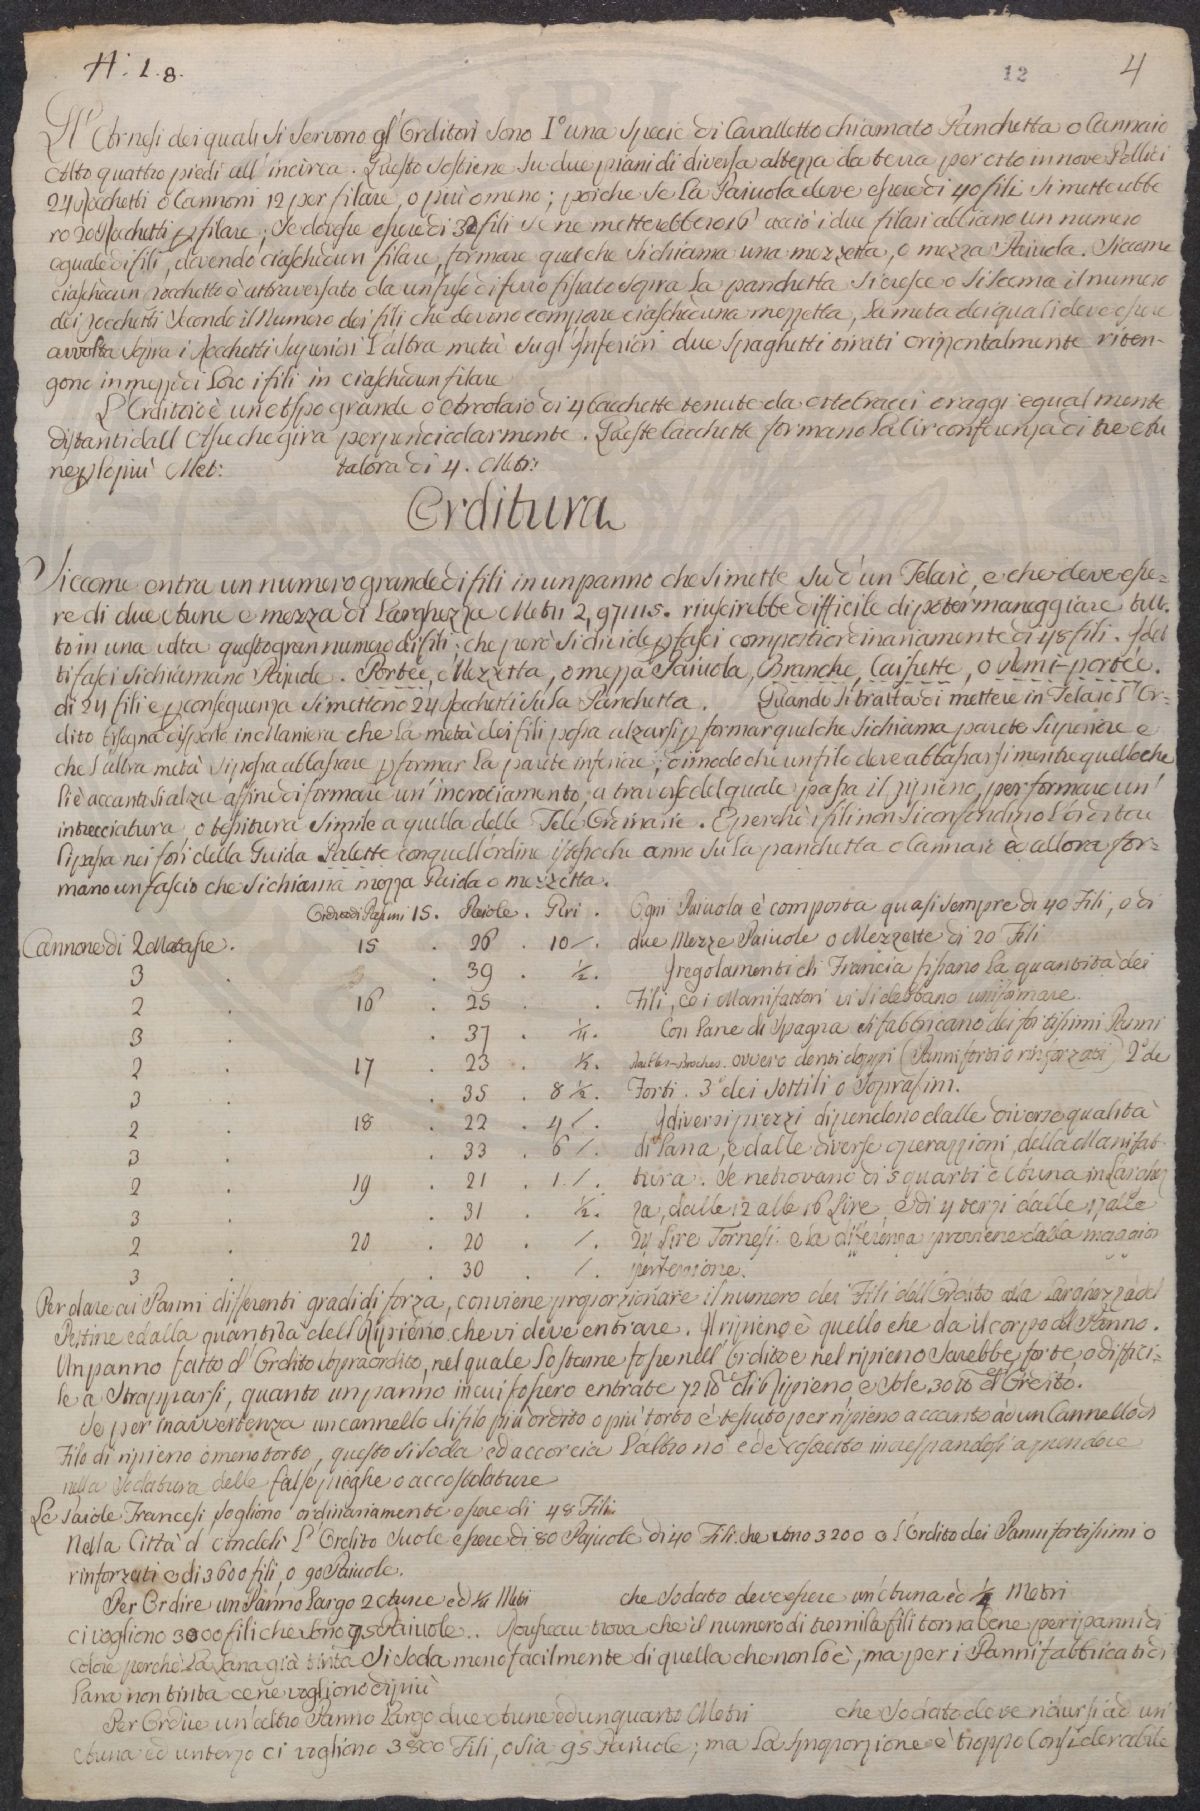 A. 1. 8. 12 4
Gl' Arnesi dei quali si servono gl' Orditori sono I.° una specie di Cavalletto chiamato Panchetta o Cannaio
Alto quattro piedi all' incirca. Questo sostiene su due piani di diversa altezza da terra per otto in nove Pollici
24 Rocchetti o Cannoni 12 per filare, o più o meno; poiche se La Paiuola deve essere di 40 fili si metterebbe
ro 20 Rocchetti p filare; se dovesse essere di 32 fili se ne metterebbero 16 acciò i due filari abbiano un numero
eguale di fili, dovendo ciaschedun filare, formare quel che si chiama una mezzetta, o mezza Paiuola. Siccome
ciaschedun rocchetto è attraversato da un fuso di ferro fissato sopra La panchetta si cresce o si scema il numero
dei rocchetti secondo il Numero dei fili che devono comporre ciascheduna mezzetta, La metà dei quali deve essere
avvolta sopra i Rocchetti superiori l'altra metà sugl' Inferiori due Spaghetti tirati orizzontalmente riten-
gono in mezzo di Loro i fili in ciaschedun filare
L'Orditoio è un Aspo grande o Arcolaio di 4 Cacchette tenute da otto bracci o raggi egualmente
distanti dall' Asse che gira perpendicolarmente. Queste Cacchette formano La Circonferenza di tre Au
ne p lo più Met: talora di 4. Metr:
Orditura
Siccome entra un numero grande di fili in un panno che si mette su d'un Telaio, e che deve esse-
re di due Aune e mezza di Larghezza Metri 2,97115. riuscirebbe difficile di poter maneggiare tut-
to in una volta questo gran numero di fili; che però si divide p fasci composti ordinariamente di 48 fili. I det
ti fasci si chiamano Paiuole. Portée, Mezzetta, o mezza Paiuola, Branche, Cuissette, o demi-portée.
di 24 fili e p conseguenza si mettono 24 Rocchetti su La Panchetta. Quando si tratta di mettere in Telaio l'Or-
dito bisogna disporlo in Maniera che La metà dei fili possa alzarsi p formar quel che si chiama parete superiore e
che l'altra metà si possa abbassare p formar La parete inferiore, dimodo che un filo deve abbassarsi mentre quello che
li è accanto si alza affine di formare un' incrociamento, a traverso del quale passa il ripieno, per formare un'
intrecciatura, o tessitura simile a quella delle Tele Ordinarie. E perchè i fili non si confondino L'orditore
li passa nei fori della Guida Palette con quell'ordine istesso che anno su La panchetta o Cannaio e allora for-
mano un fascio che si chiama mezza Paiola o mezzetta.
Ordito di Passini 15. Paiole. Giri. Ogni Paiuola è composta quasi sempre di 40 Fili, o di
Cannone di 2 Matasse. 15 . 26 . 10 /. due Mezze Paiuole o Mezzette di 20 Fili
3 . . 39 . ½. I regolamenti di Francia fissano La quantità dei
2 . 16 . 25 . . Fili, e i Manifattori vi si debbano uniformare.
3 . . 37 . ¼. Con Lane di Spagna si fabbricano dei fortissimi Panni
2 . 17 . 23 . ½. ovvero denti doppi (Panni forti o rinforzati) 2° de
3 . . 35 . 8 ½. Forti. 3° dei sottili o soprafini.
2 . 18 . 22 . 4 /. I diversi prezzi dipendono dalle diverse qualità
3 . . 33 . 6 /. di Lana, e dalle diverse operazzioni, della Manifat-
2 . 19 . 21 . 1. /. tura. Se ne trovano di 5 quarti d' Auna in Larghez
3 . . 31 . ½. za, dalle 12 alle 16 Lire, e di 4 terzi dalle 17 alle
2 . 20 . 20 . /. 24 Lire Tornesi. e la differenza proviene dalla maggior
3 . . 30 . /. perfezione.
Per dare ai Panni differenti gradi di forza, conviene proporzionare il numero dei Fili dell' Ordito alla Larghezza del
Pettine ed alla quantità dell' Ripieno che vi deve entrare. Il ripieno è quello che da il corpo al Panno.
Un panno fatto d' Ordito sopra ordito, nel quale Lo stame fosse nell' Ordito e nel ripieno sarebbe forte, o diffici-
le a strapparsi, quanto un panno in cui fossero entrate 72 lb di Ripieno e sole 30 lb d' Ordito.
Se per inavvertenza un cannello di filo più ordito o più torto è tessuto per ripieno accanto ad un Cannello di
Filo di ripieno o meno torto, questo si soda ed accorcia l'altro nò ed è costretto increspandosi a prendere
nella sodatura delle false pieghe o accostolature
Le Paiole Francesi sogliono ordinariamente essere di 48 Fili.
Nella Città d' Andelì L' Ordito suole essere di 80 Pajuole di 40 Fili che sono 3200 o l'Ordito dei Panni fortissimi o
rinforzati è di 3600 fili, o 90 Paiuole.
Per Ordire un Panno Largo 2 Aune ed ¼ Metri che sodato deve essere un' Auna ed ¼ Metri
ci vogliono 3000 fili che sono 75 Paiuole.. Rousseau trova che il numero di tremila fili torna bene per i panni di
Colore perchè La Lana già tinta si soda meno facilmente di quella che non lo è, ma per i Panni fabbricati di
Lana non tinta ce ne vogliono di più
Per Ordire un' altro Panno Largo due Aune ed un quarto Metri che sodato deve ridursi ad un'
Auna ed un terzo ci vogliono 3800 Fili, o sia 95 Paiuole; ma La sproporzione è troppo Considerabile